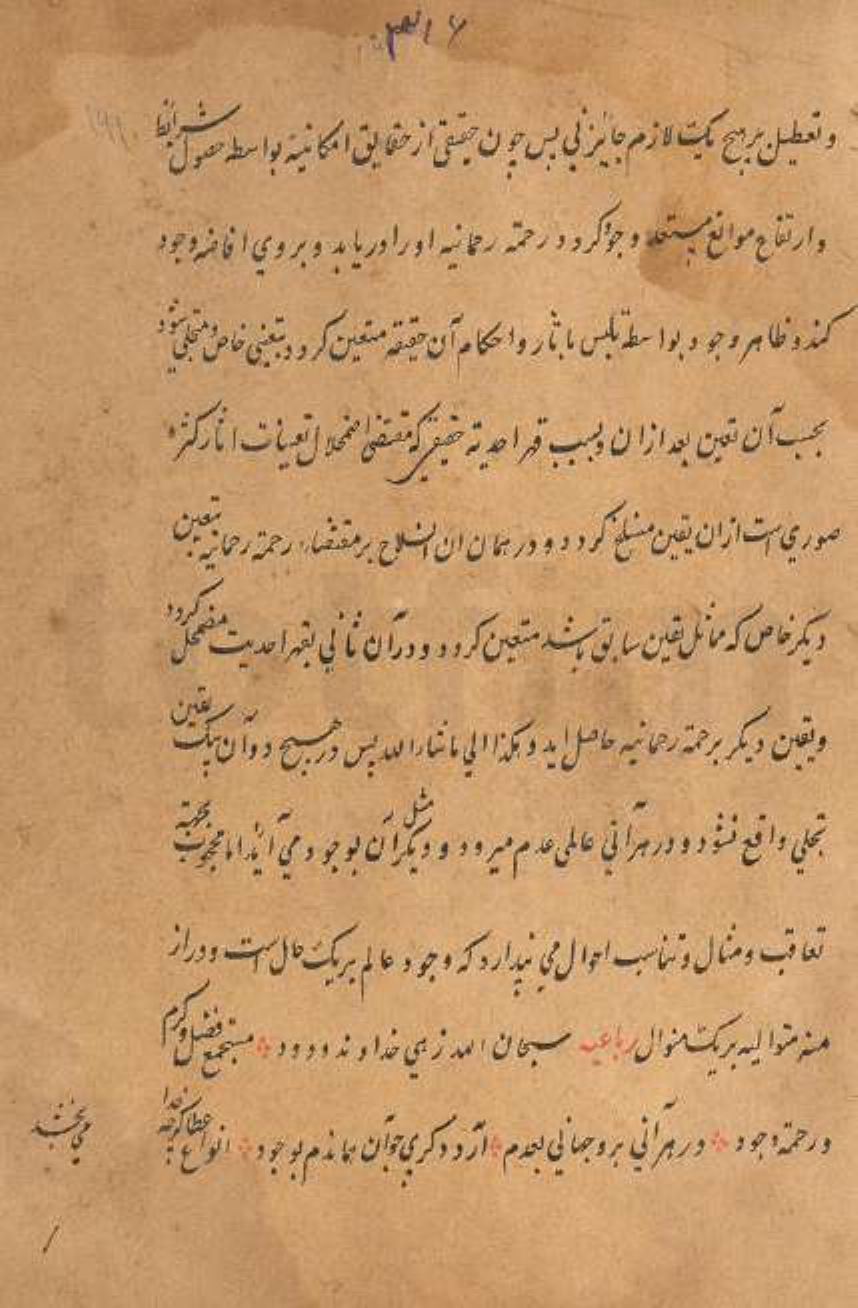 وتعطیل بر هیچ یک لازم جائز نی پس چون حقیقتی از حقایق امکانیه بواسطه حصول شرائط
وارتفاع موانع مستعد وجود کردد رحمة رحمانیه اورا دریابد وبروی افاضه وجود
کند وظاهر وجود بواسطة تلبس باثار واحکام آن حقیقة متعین کردد بتعینی خاص ومتجلی شود
بحسب آن تعین بعد ازان وبسبب قهر احدیة حقیقی که مقتضی اضمحلال تعینات اثار کثرة
صوری است ازان یقین منسلخ کردد و در همان ان انسلاخ بر مقتضاء رحمة رحمانیه بتعین
دیکر خاص که مماثل یقین سابق باشد متعین کردد ودر آن ثانی بقهر احدیت مضمحل کردد
ویقین دیکر برحمة رحمانیه حاصل اید وهکذا الی ماشاء الله پس در هیچ دو آن بیک یقین
تجلی واقع نشود ودر هر آنی عالمی عدم میرود ودیکر آن مثل بوجود می آید اما محجوب بجهة
تعاقب ومثال وتناسب احوال می پندارد که وجود عالم بریک حال است ودر از
منه متوالیه بریک منوال رباعیه سبحان الله زهی خداوند ودود مستجمع فضل وکرم
ورحمة وجود در هر آنی برد جهانی بعدم آرد دکری چو آن هماندم بوجود انواع عطا کرچه خدا
می بخشد